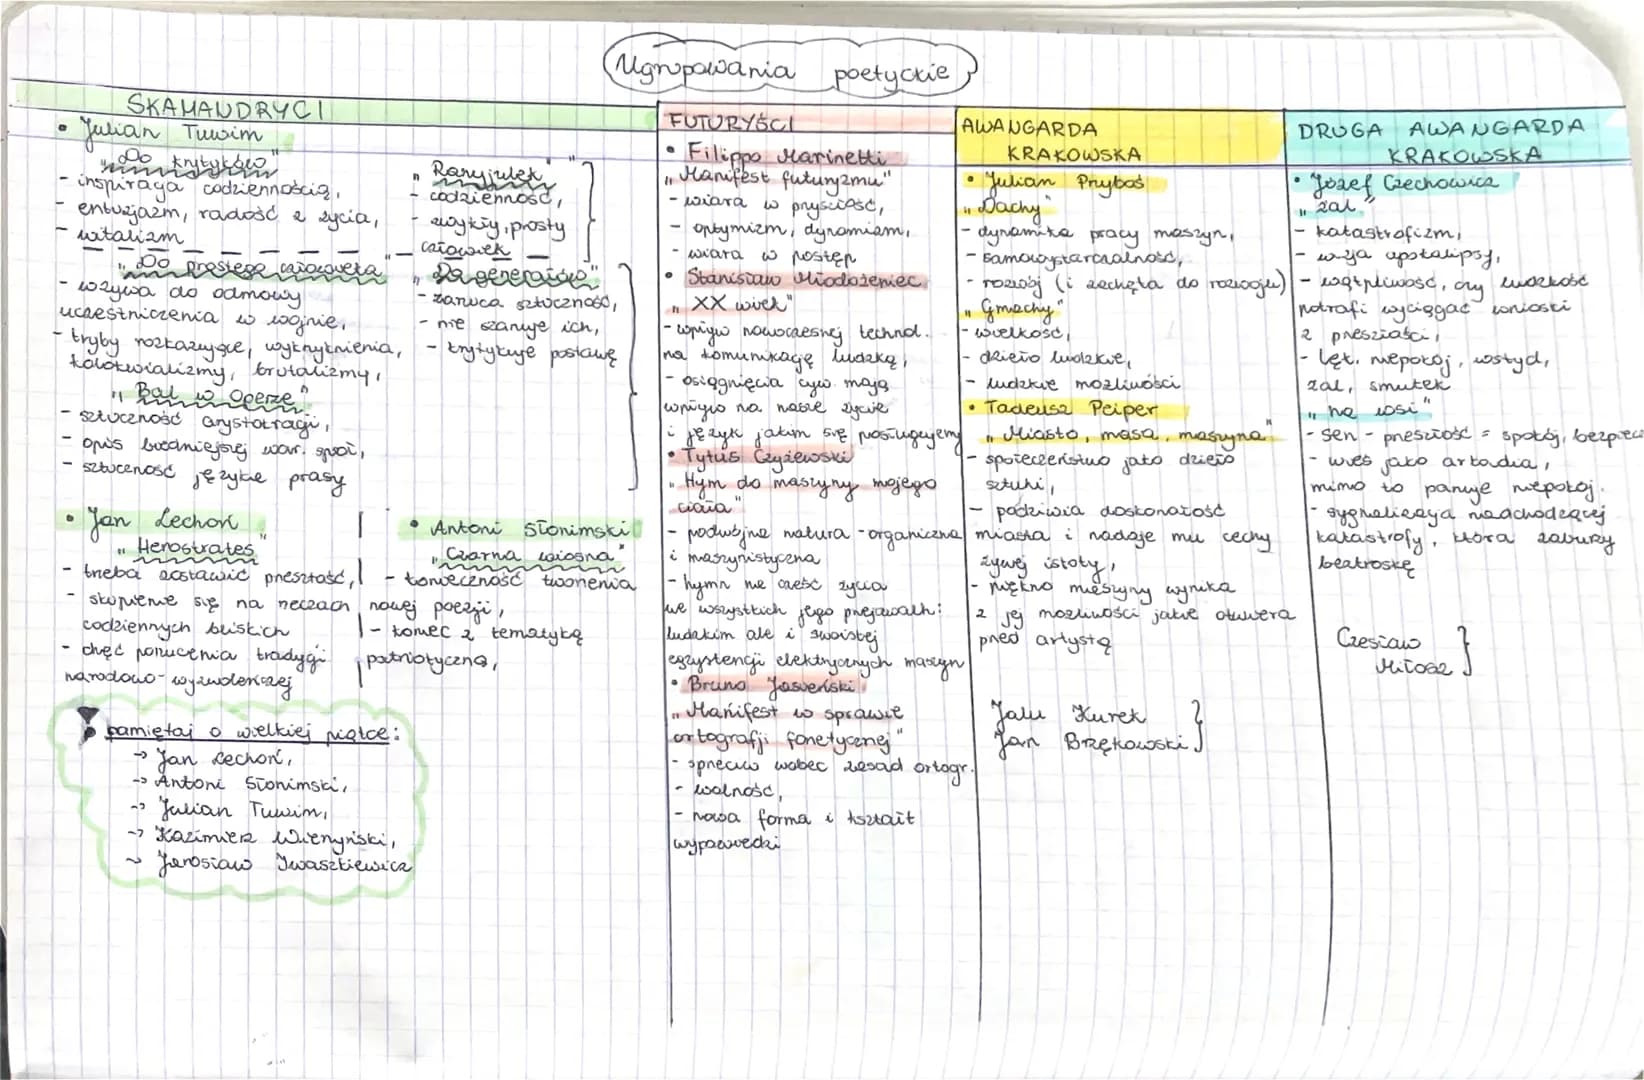 Ugrupowania poetyckie
SKAMANDRYCI
• Julian Tuwim
"Do krytyków"
- inspiracja codziennością,
- entuzjazm, radość z życia,
- witalizm
"Rzryjulek"
- codzienność,
- zwykły, prosty
człowiek
"Do prostego człowieka"
- wzywa do odmowy
uczestniczenia w wojnie,
- tryby rozkazujące, wykrzyknienia,
kolokwializmy, brutalizmy,
"Do generałów"
- zarzuca sztuczność,
- nie szanuje ich,
- krytykuje postawę
"Bal w Operze"
- sztuczność arystokracji,
- opis biedniejszej war. społ,
- sztuczność języka prasy
• Jan Lechoń
"Herostrates"
- trzeba zostawić przeszłość,
- skupienie się na rzeczach
codziennych bliskich
- chęć porzucenia tradycji
narodowo-wyzwoleńczej
• Antoni Słonimski
"Czarna wiosna"
- konieczność tworzenia
nowej poezji,
- koniec z tematyką
patriotyczną,
pamiętaj o wielkiej piątce:
→ Jan Lechoń,
→ Antoni Słonimski,
→ Julian Tuwim,
→ Kazimierz Wierzyński,
→ Jarosław Iwaszkiewicz
FUTURYŚCI
• Filippo Marinetti
"Manifest futuryzmu"
- wiara w przyszłość,
- optymizm, dynamizm,
- wiara w postęp
• Stanisław Młodożeniec
"XX wiek"
- wpływ nowoczesnej technol.
na komunikację ludzką,
- osiągnięcia cyw. mają
wpływ na nasze życie
i język jakim się posługujemy
• Tytus Czyżewski
"Hym do maszyny mojego
ciała"
- podwójna natura - organiczna
i maszynistyczna
- hymn na cześć życia
we wszystkich jego przejawach:
ludzkim ale i swoistej
egzystencji elektrycznych maszyn
• Bruno Jasieński
"Manifest w sprawie
ortografii fonetycznej"
- sprzeciw wobec zasad ortogr.
- wolność,
- nowa forma i kształt
wypowiedzi
AWANGARDA
KRAKOWSKA
• Julian Przyboś
"Dachy"
- dynamika pracy maszyn,
- samowystarczalność,
- rozwój (i zachęta do rozwoju)
"Gmachy"
- wielkość,
- dzieło ludzkie,
- ludzkie możliwości
• Tadeusz Peiper
"Miasto, masa, maszyna"
- społeczeństwo jako dzieło
sztuki,
- podziwia doskonałość
miasta i nadaje mu cechy
żywej istoty,
- piękno maszyny wynika
z jej możliwości jakie otwiera
przed artystą
Jalu Kurek
Jan Brzękowski
DRUGA AWANGARDA
KRAKOWSKA
• Józef Czechowicz
"żal"
- katastrofizm,
- wizja apokalipsy,
- wątpliwość, czy ludzkość
potrafi wyciągać wnioski
z przeszłości,
- lęk, niepokój, wstyd,
żal, smutek
"na wsi"
- sen - przeszłość = spokój, bezpiecz
- wieś jako arkadia,
mimo to panuje niepokój.
- sygnalizacja nadchodzącej
katastrofy, która zaburzy
beztroskę
Czesław
Miłosz